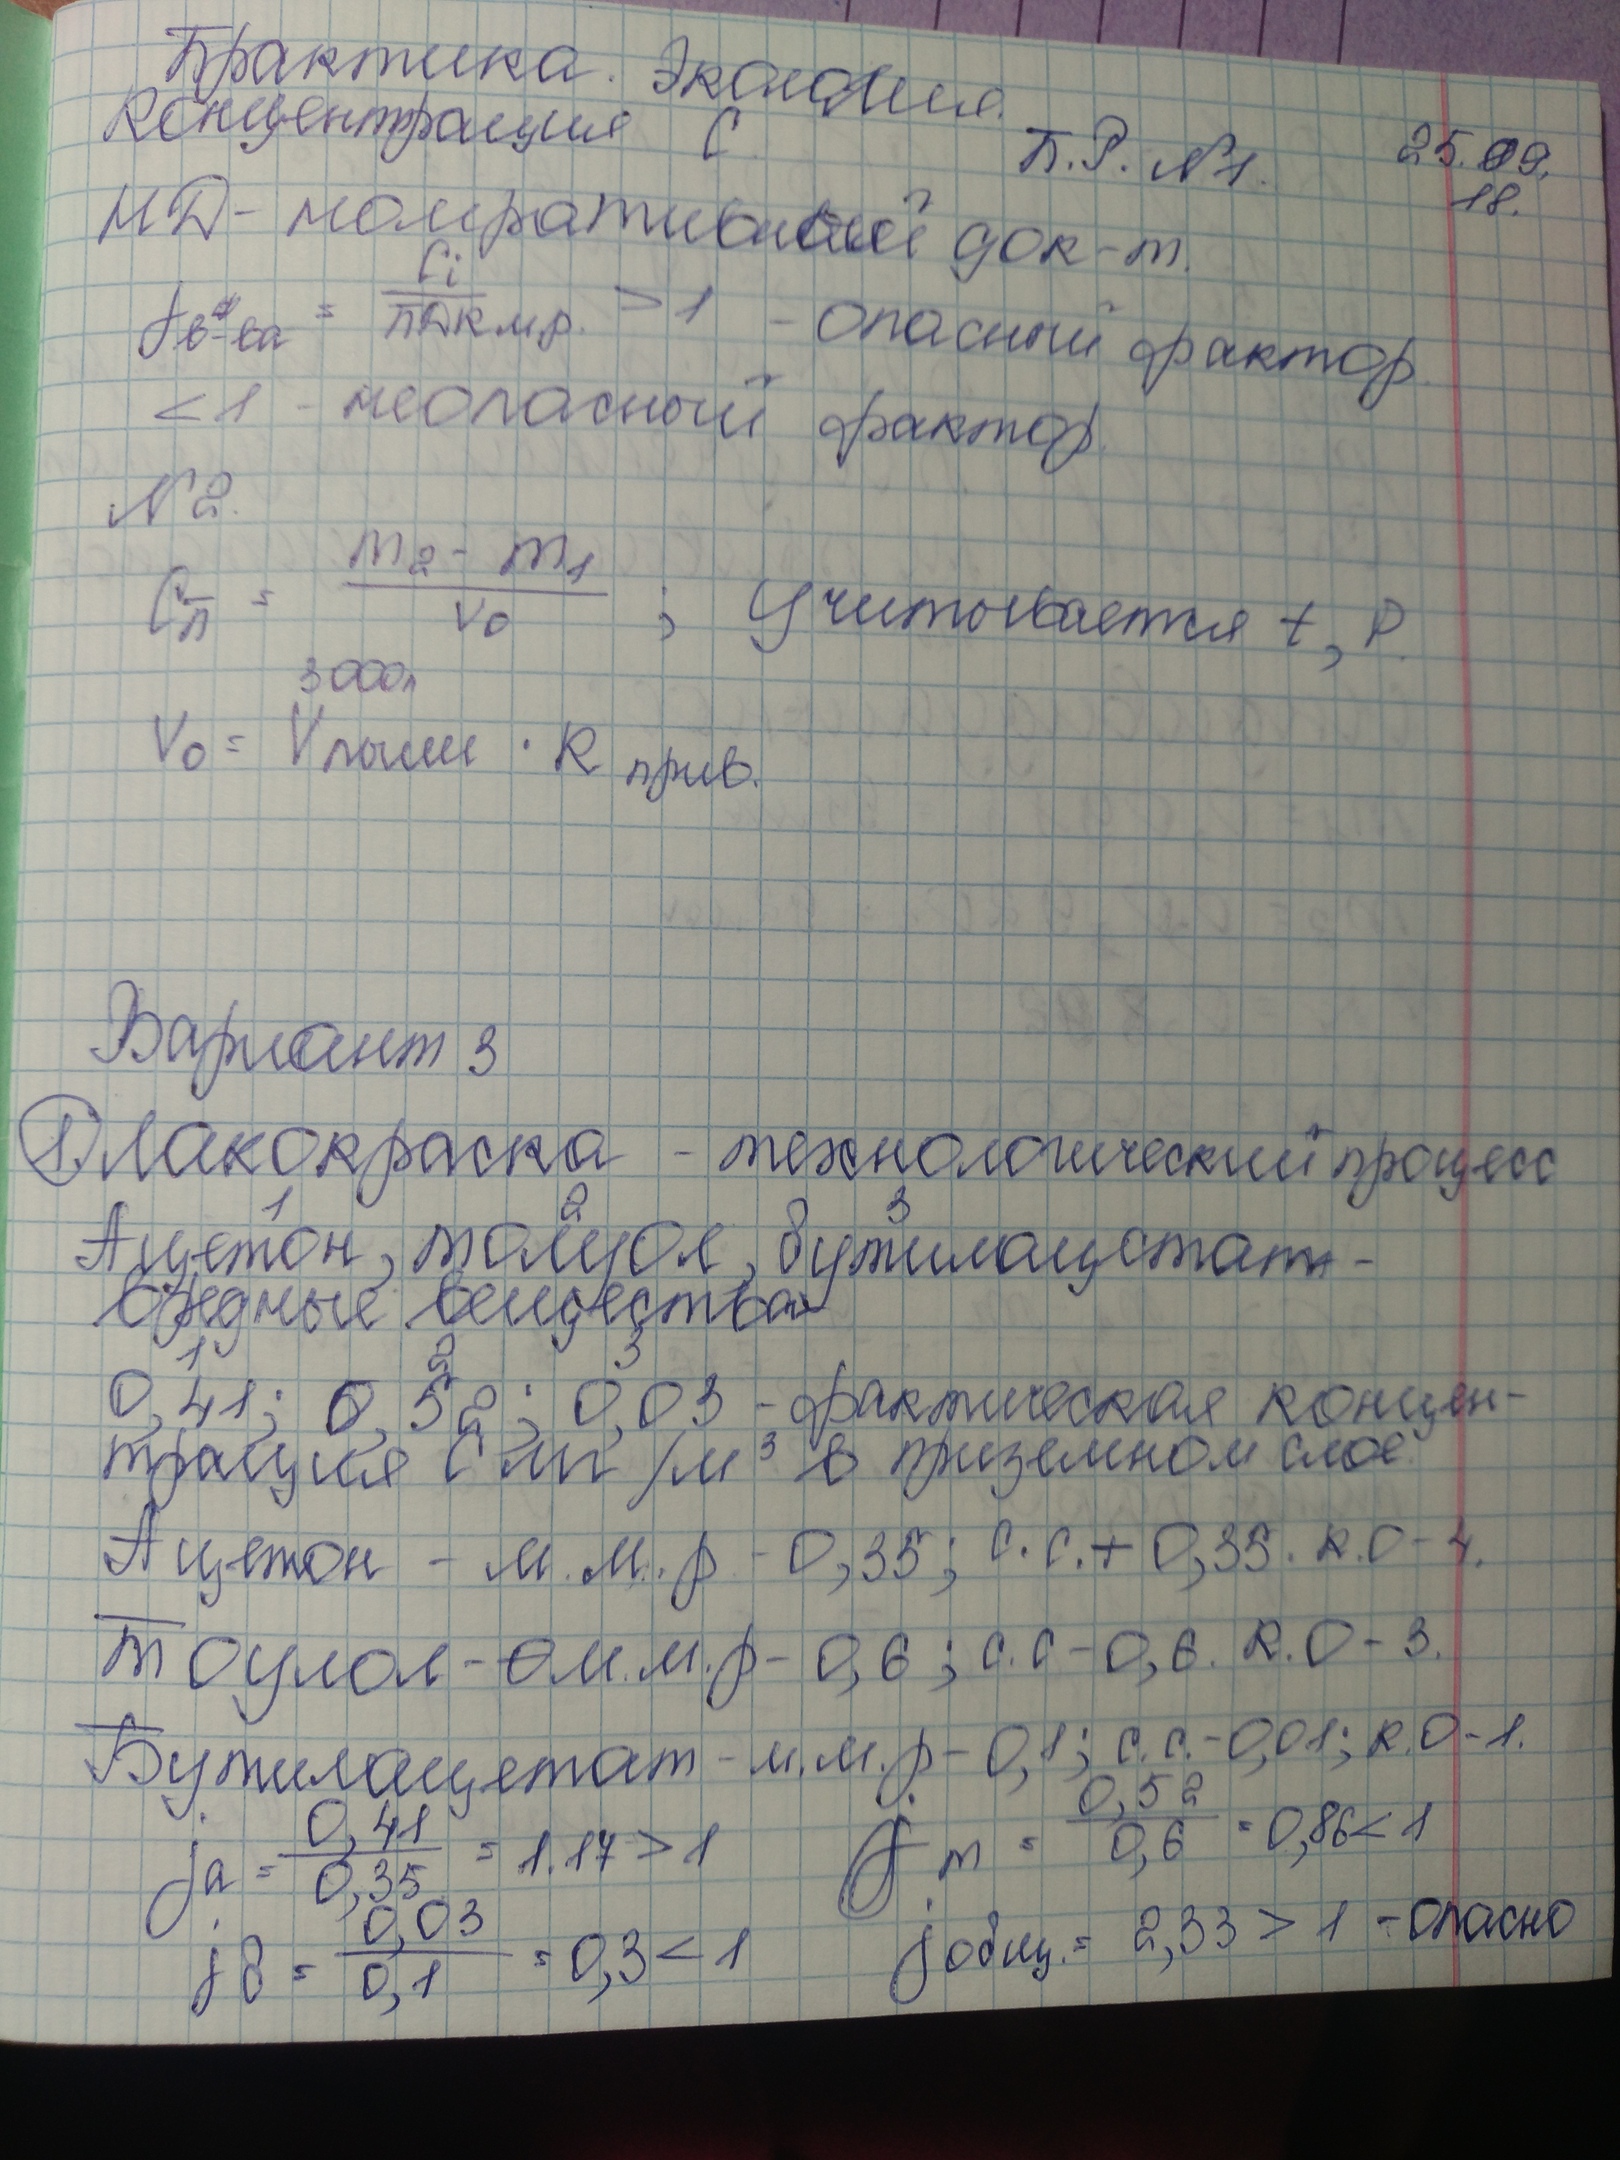 Практика. Экология.
Концентрация С
П.Р. №1.
25.09.
18.
НД - нормативный док-т.
j в-ва = Ci / ПДК м.р. > 1 - опасный фактор.
< 1 - неопасный фактор.
№2.
Cп = m2 - m1 / V0 ; Учитывается t, P.
3000л
V0 = Vпыли · К прив.
Вариант 3
1) Лакокраска - технологический процесс
1 2 3
Ацетон, толуол, бутилацетат -
вредные вещества
1 2 3
0,41; 0,52; 0,03 - фактическая концен-
трация С мг/м³ в приземном слое
Ацетон - м.м.р - 0,35; с.с. + 0,35. К.О - 4.
Тоулол - м.м.р - 0,6; с.с - 0,6. К.О - 3.
Бутилацетат - м.м.р - 0,1; с.с. - 0,01; К.О - 1.
jа = 0,41 / 0,35 = 1.17 > 1
jт = 0,52 / 0,6 = 0,86 < 1
jб = 0,03 / 0,1 = 0,3 < 1
jобщ. = 2,33 > 1 - опасно